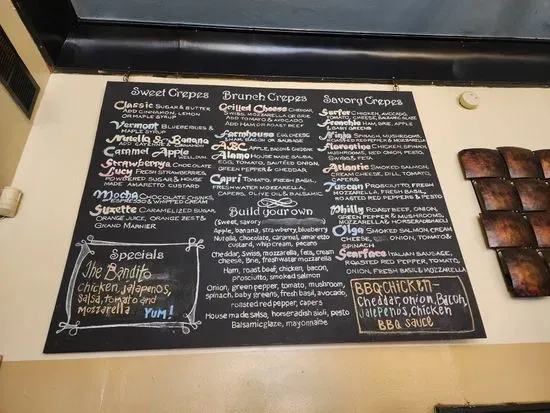 Sweet Crepes
Classic Sugar & Butter
Add Cinnamon, Lemon
or Maple Syrup
Vermont Blueberries &
Maple Syrup
Nutella & Banana
Add Cayenne
Caramel Apple
Strawberry
Lucy Fresh Strawberries,
Powdered Sugar & House
Made Amaretto Custard
Mocha Chocolate Chunks,
Espresso & Whipped Cream
Suzette Caramelized Sugar
Orange Juice, Orange Zest &
Grand Marnier
Specials
The Bandito
Chicken, jalapenos,
salsa, tomato and
mozzarella
YUM!
Brunch Crepes
Grilled Cheese Cheddar,
Swiss, Mozzarella or Brie
Add Tomato & Avocado
Add Ham or Roast Beef
Farmhouse Egg, Cheese
& Ham, Bacon or Sausage
A.B.C. Apple, Bacon & Cheddar
Alamo House Made Salsa,
Egg, Tomato, Sautéed Onion,
Green Pepper & Cheddar
Capri Tomato, Fresh Basil,
Freshwater Mozzarella,
Capers, Olive Oil & Balsamic
Build your own
(Sweet, savory)
Apple, banana, strawberry, blueberry
Nutella, chocolate, caramel, amaretto
custard, whip cream, pecans
Cheddar, Swiss, mozzarella, feta, cream
cheese, Brie, freshwater mozzarella
Ham, roast beef, chicken, bacon,
prosciutto, smoked salmon
Onion, green pepper, tomato, mushroom,
spinach, baby greens, fresh basil, avocado,
roasted red pepper, capers
House made salsa, horseradish aioli, pesto
Balsamic glaze, mayonnaise
Savory Crepes
Surfer Chicken, Avocado,
Tomato, Cheese,
Frenchie Ham, Brie, Apple
& Baby Greens
Nina Spinach, Mushrooms,
Roasted Red Pepper & Mozzarella
Florentine Chicken, Spinach
Mushrooms, Red Onion, Pesto,
Swiss & Feta
Atlantic Smoked Salmon,
Cream Cheese, Dill, Tomato,
Capers
Tuscan Prosciutto, Fresh
Mozzarella, Fresh Basil,
Roasted Red Peppers & Pesto
Philly Roast Beef, Onion,
Green Pepper & Mushrooms,
Mozzarella & Horseradish Aioli
Olga Smoked Salmon, Cream
Cheese, Onion, Tomato &
Spinach
Scarface Italian Sausage,
Roasted Red Pepper, Tomato,
Onion, Fresh Basil & Mozzarella
BBQ-Chicken-
Cheddar, onion, Bacon,
jalepeños, chicken
BBQ sauce